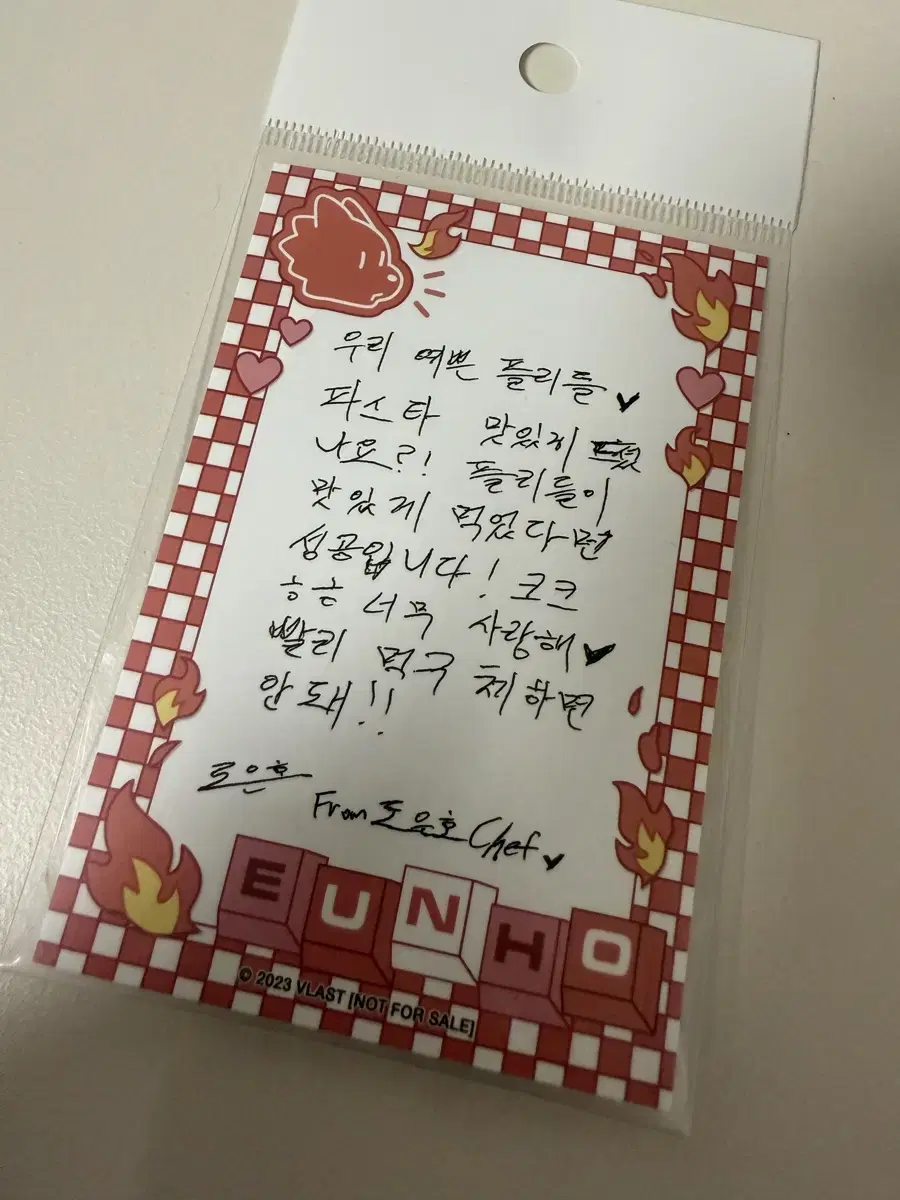 우리 예쁜 플리들 ♥
파스타 맛있게 드셨
나요?! 플리들이
맛있게 먹었다면
성공입니다! 크크
흐흐 너무 사랑해 ♥
빨리 먹구 체하면
안돼!!
도은호
From 도은호 Chef ♥
EUNHO
© 2023 VLAST [NOT FOR SALE]